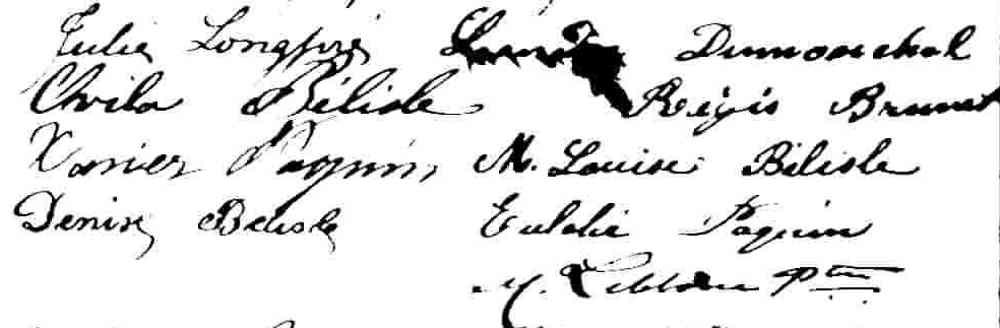 Julie Longpré Dumouchel
Ovila Bélisle Régis Brunet
Xavier Paquin, M. Louise Bélisle
Denise Bélisle Eulalie Paquin
M. Ptre